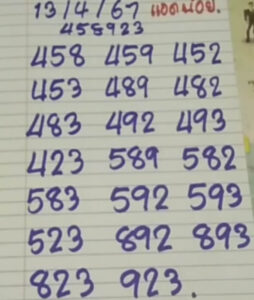 13/4/67 แอดน้อย.
458923
458 459 452
453 489 482
483 492 493
423 589 582
583 592 593
523 892 893
823 923.